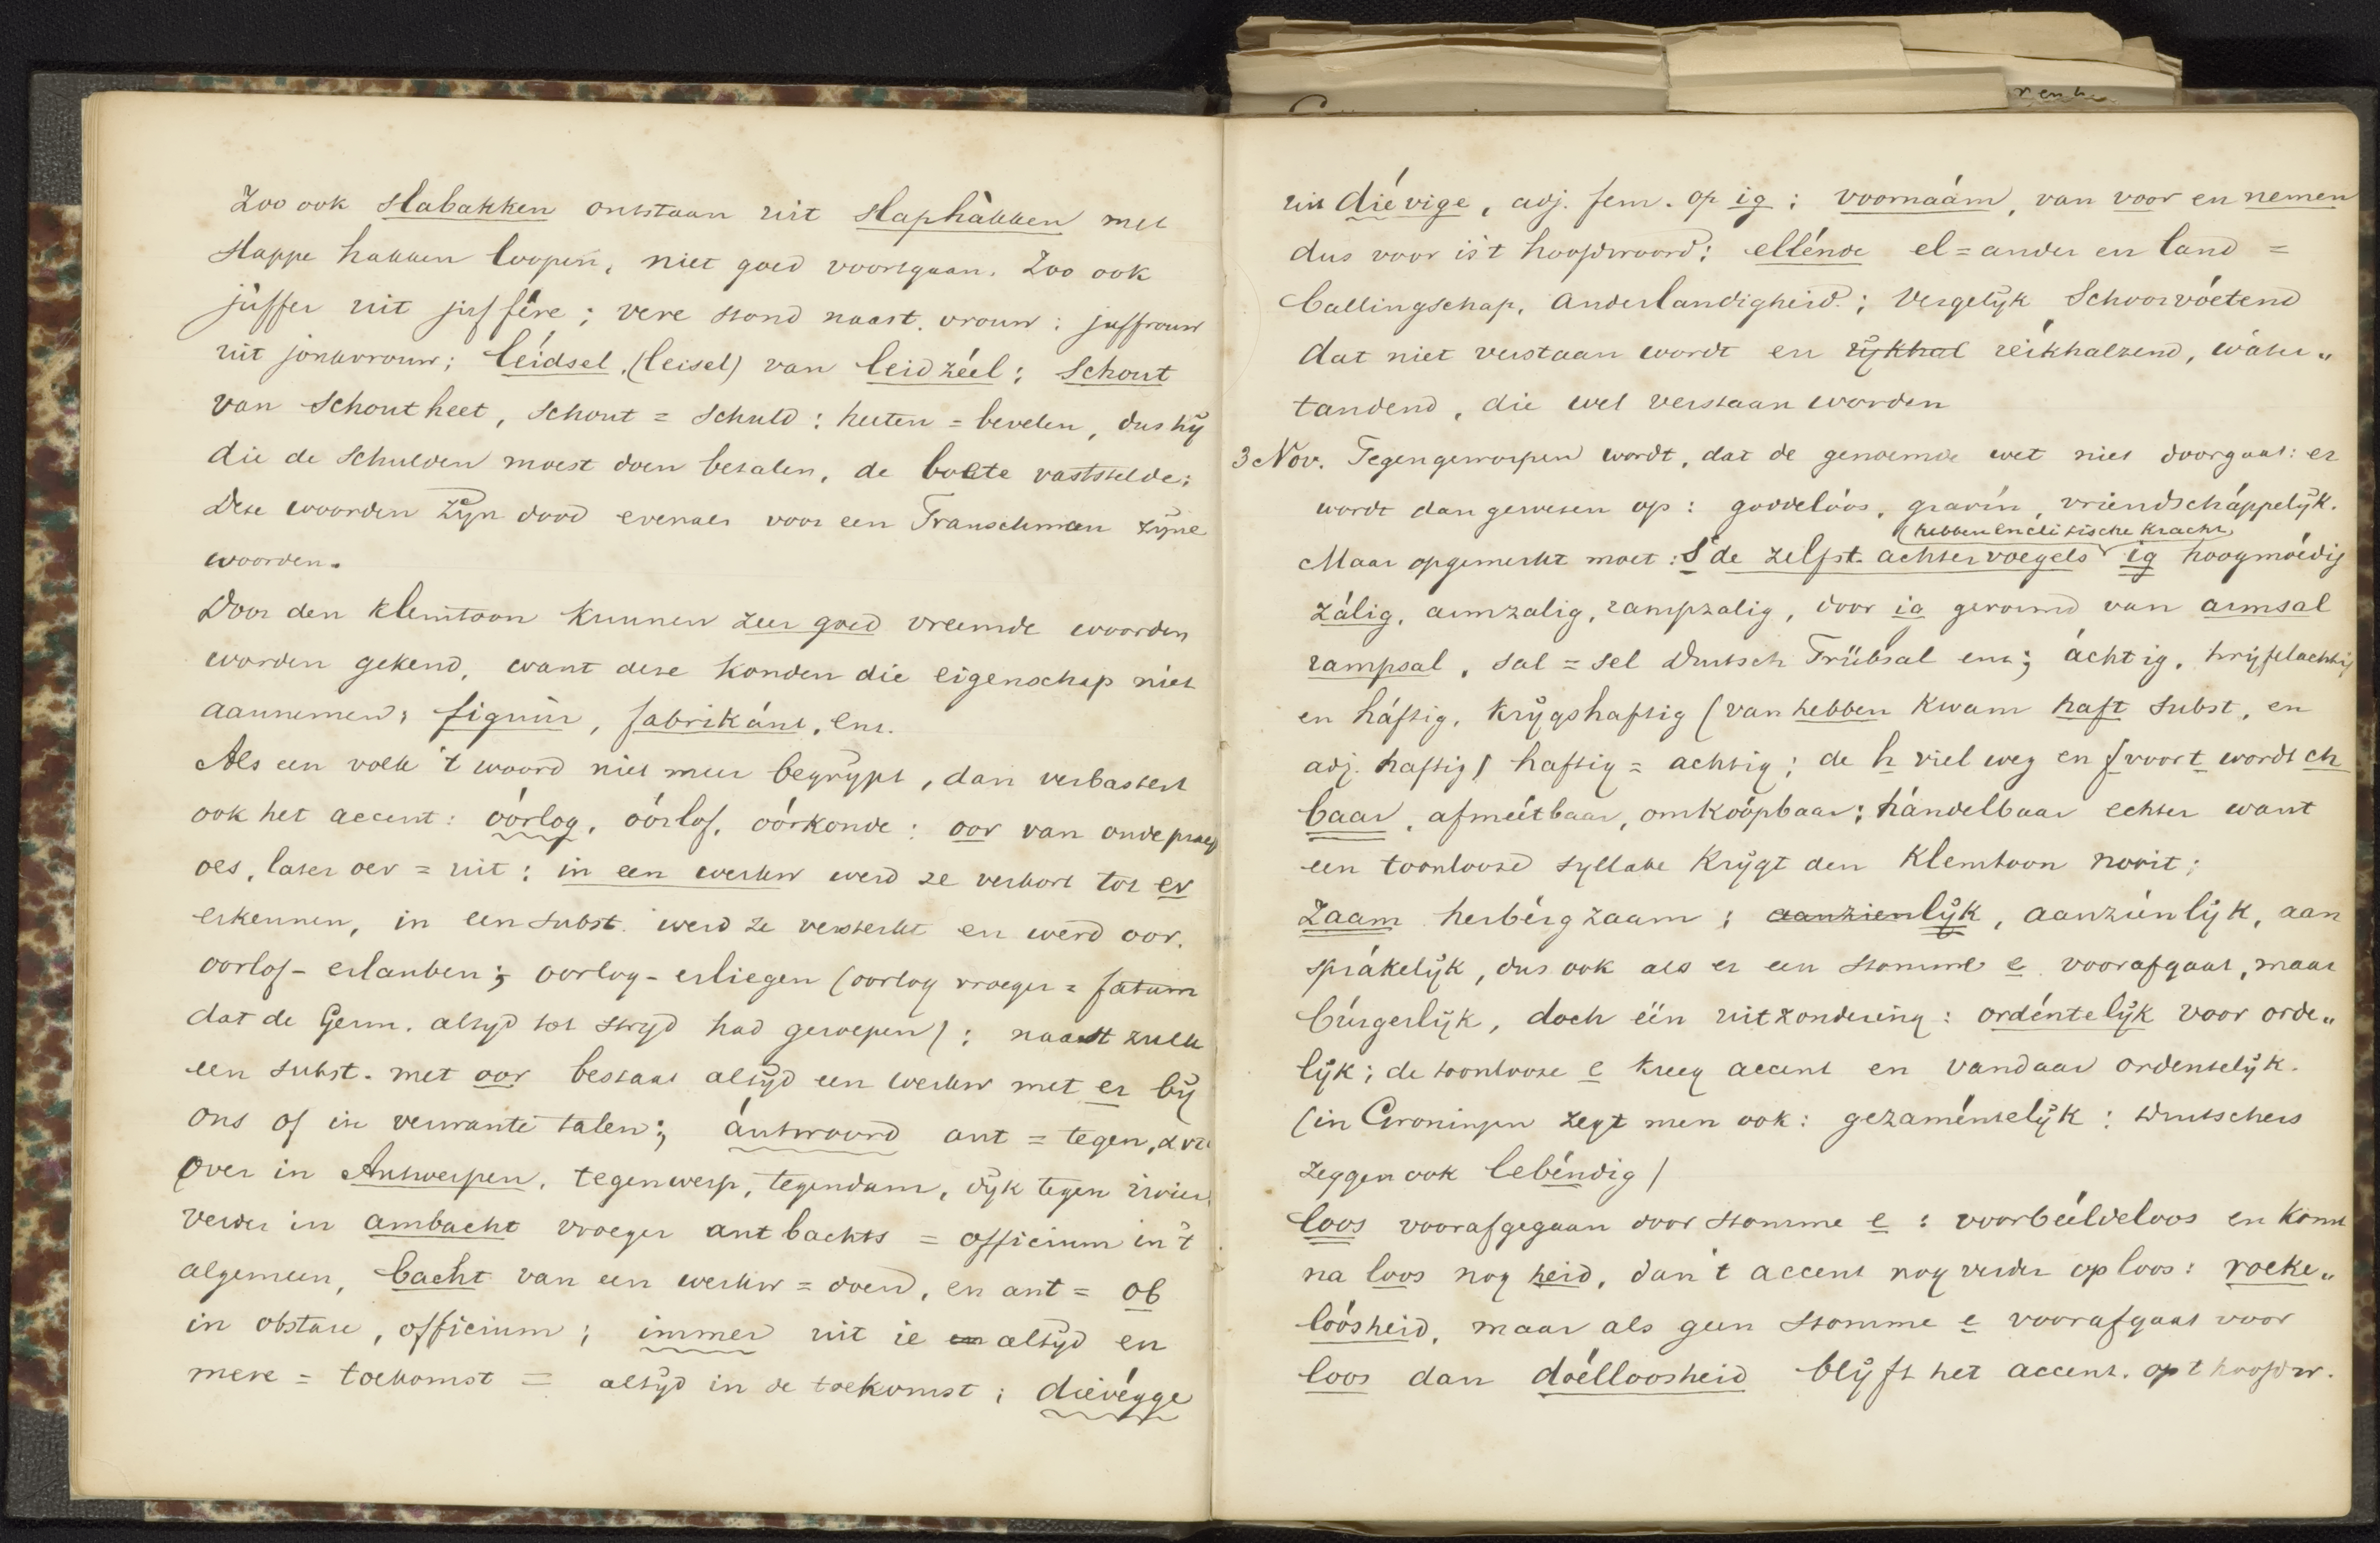 Zoo ook slabakken ontstaan uit slaphàkken met
slappe hakken loopen, niet goed voortgaan. Zoo ook
jùffer uit juffére; vere stond naast vrouw: juffrouw
uit jonkvrouw; léidsel, (leisel) van leidzéél; Schout
van Schoutheet, Schout = Schuld: heeten = bevelen, dus hÿ
die de Schulden moest doen betalen, de boete vaststelde;
Deze woorden zÿn dood evenals voor een Franschman zÿne
woorden.
Door den klemtoon kunnen zeer goed vreemde woorden
worden gekend, want deze konden die eigenschap niet
aannemen; figuúr, fabrikánt, enz.
Als een volk 't woord niet meer begrÿpt, dan verbastert
ook het accent: óórlog, óórlof, óórkonde: oor van oude praep
oes, later oer = uit: in een werkw werd ze verkort tot er
erkennen, in een subst. werd ze versterkt en werd oor.
oorlof - erlauben; oorlog - erliegen (oorlog vroeger = fatum
dat de Germ. altÿd tot strÿd had geroepen); naast zulk
een subst. met oor bestaat altÿd een werkw met er bÿ
ons of in verwante talen; ántwoord ant = tegen, ἀντι
Over in Antwerpen, tegenwerp, tegendam, dÿk tegen rivier
verder in ambacht vroeger antbachts = officium in 't
algemeen, bacht van een werkw = doen, en ant = ob
in obstare, officium; immer uit ie en altÿd en
mere = toekomst = altÿd in de toekomst; dievégge
uit diévige, adj. fem. op ig; voornáám, van voor en nemen
dus voor is 't hoofdwoord; ellénde el = ander en land =
ballingschap, anderlandigheid; Vergelÿk Schoorvóetend
dat niet verstaan wordt en rÿkhal réikhalzend, wáter„
tandend, die wel verstaan worden
3 Nov. Tegengeworpen wordt, dat de genoemde wet niet doorgaat: er
wordt dan gewezen op: goddelóos, gravín, vriendscháppelÿk.
(hebben enclitische kracht)
Maar opgemerkt moet: 1° de zelfst. achtervoegels ig hoogmóedig
zálig, armzalig, rampzalig, door ig gevormd van armsal
rampsal, sal = sel Duitsch Trübsal enz; áchtig, twÿfelachtig
en háftig, krÿgshaftig (van hebben kwam haft subst, en
adj. haftig) haftig = achtig; de h viel weg en f voor t wordt ch
baar, afméétbaar, omkóópbaar; hándelbaar echter want
een toonlooze syllabe krÿgt den klemtoon nooit;
Zaam herbérgzaam; aanzienlÿk, aanzíenlÿk, aan
sprákelÿk, dus ook als er een stomme e voorafgaat, maar
búrgerlÿk, doch één uitzondering: ordéntelÿk voor orde„
lÿk; de toonlooze e kreeg accent en vandaar ordentelÿk.
(in Groningen zegt men ook: gezaméntelÿk: Duitschers
zeggen ook lebéndig)
loos voorafgegaan door stomme e: voorbééldeloos en komt
na loos nog heid, dan 't accent nog verder op loos: roeke„
lóósheid, maar als geen stomme e voorafgaat voor
loos dan dóelloosheid blÿft het accent op 't hoofdw.